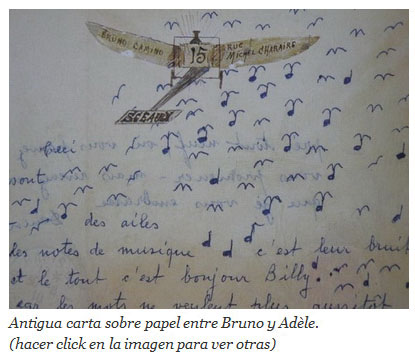 BRUNO CAMINO
15
RUE
MICHEL CHARAIRE
SCEAUX
ceci
sont
des ailes
des notes de musique c'est leur bruit
et le tout c'est bonjour Billy...
car les mots ne veulent plus aussitôt
Antigua carta sobre papel entre Bruno y Adèle.
(hacer click en la imagen para ver otras)